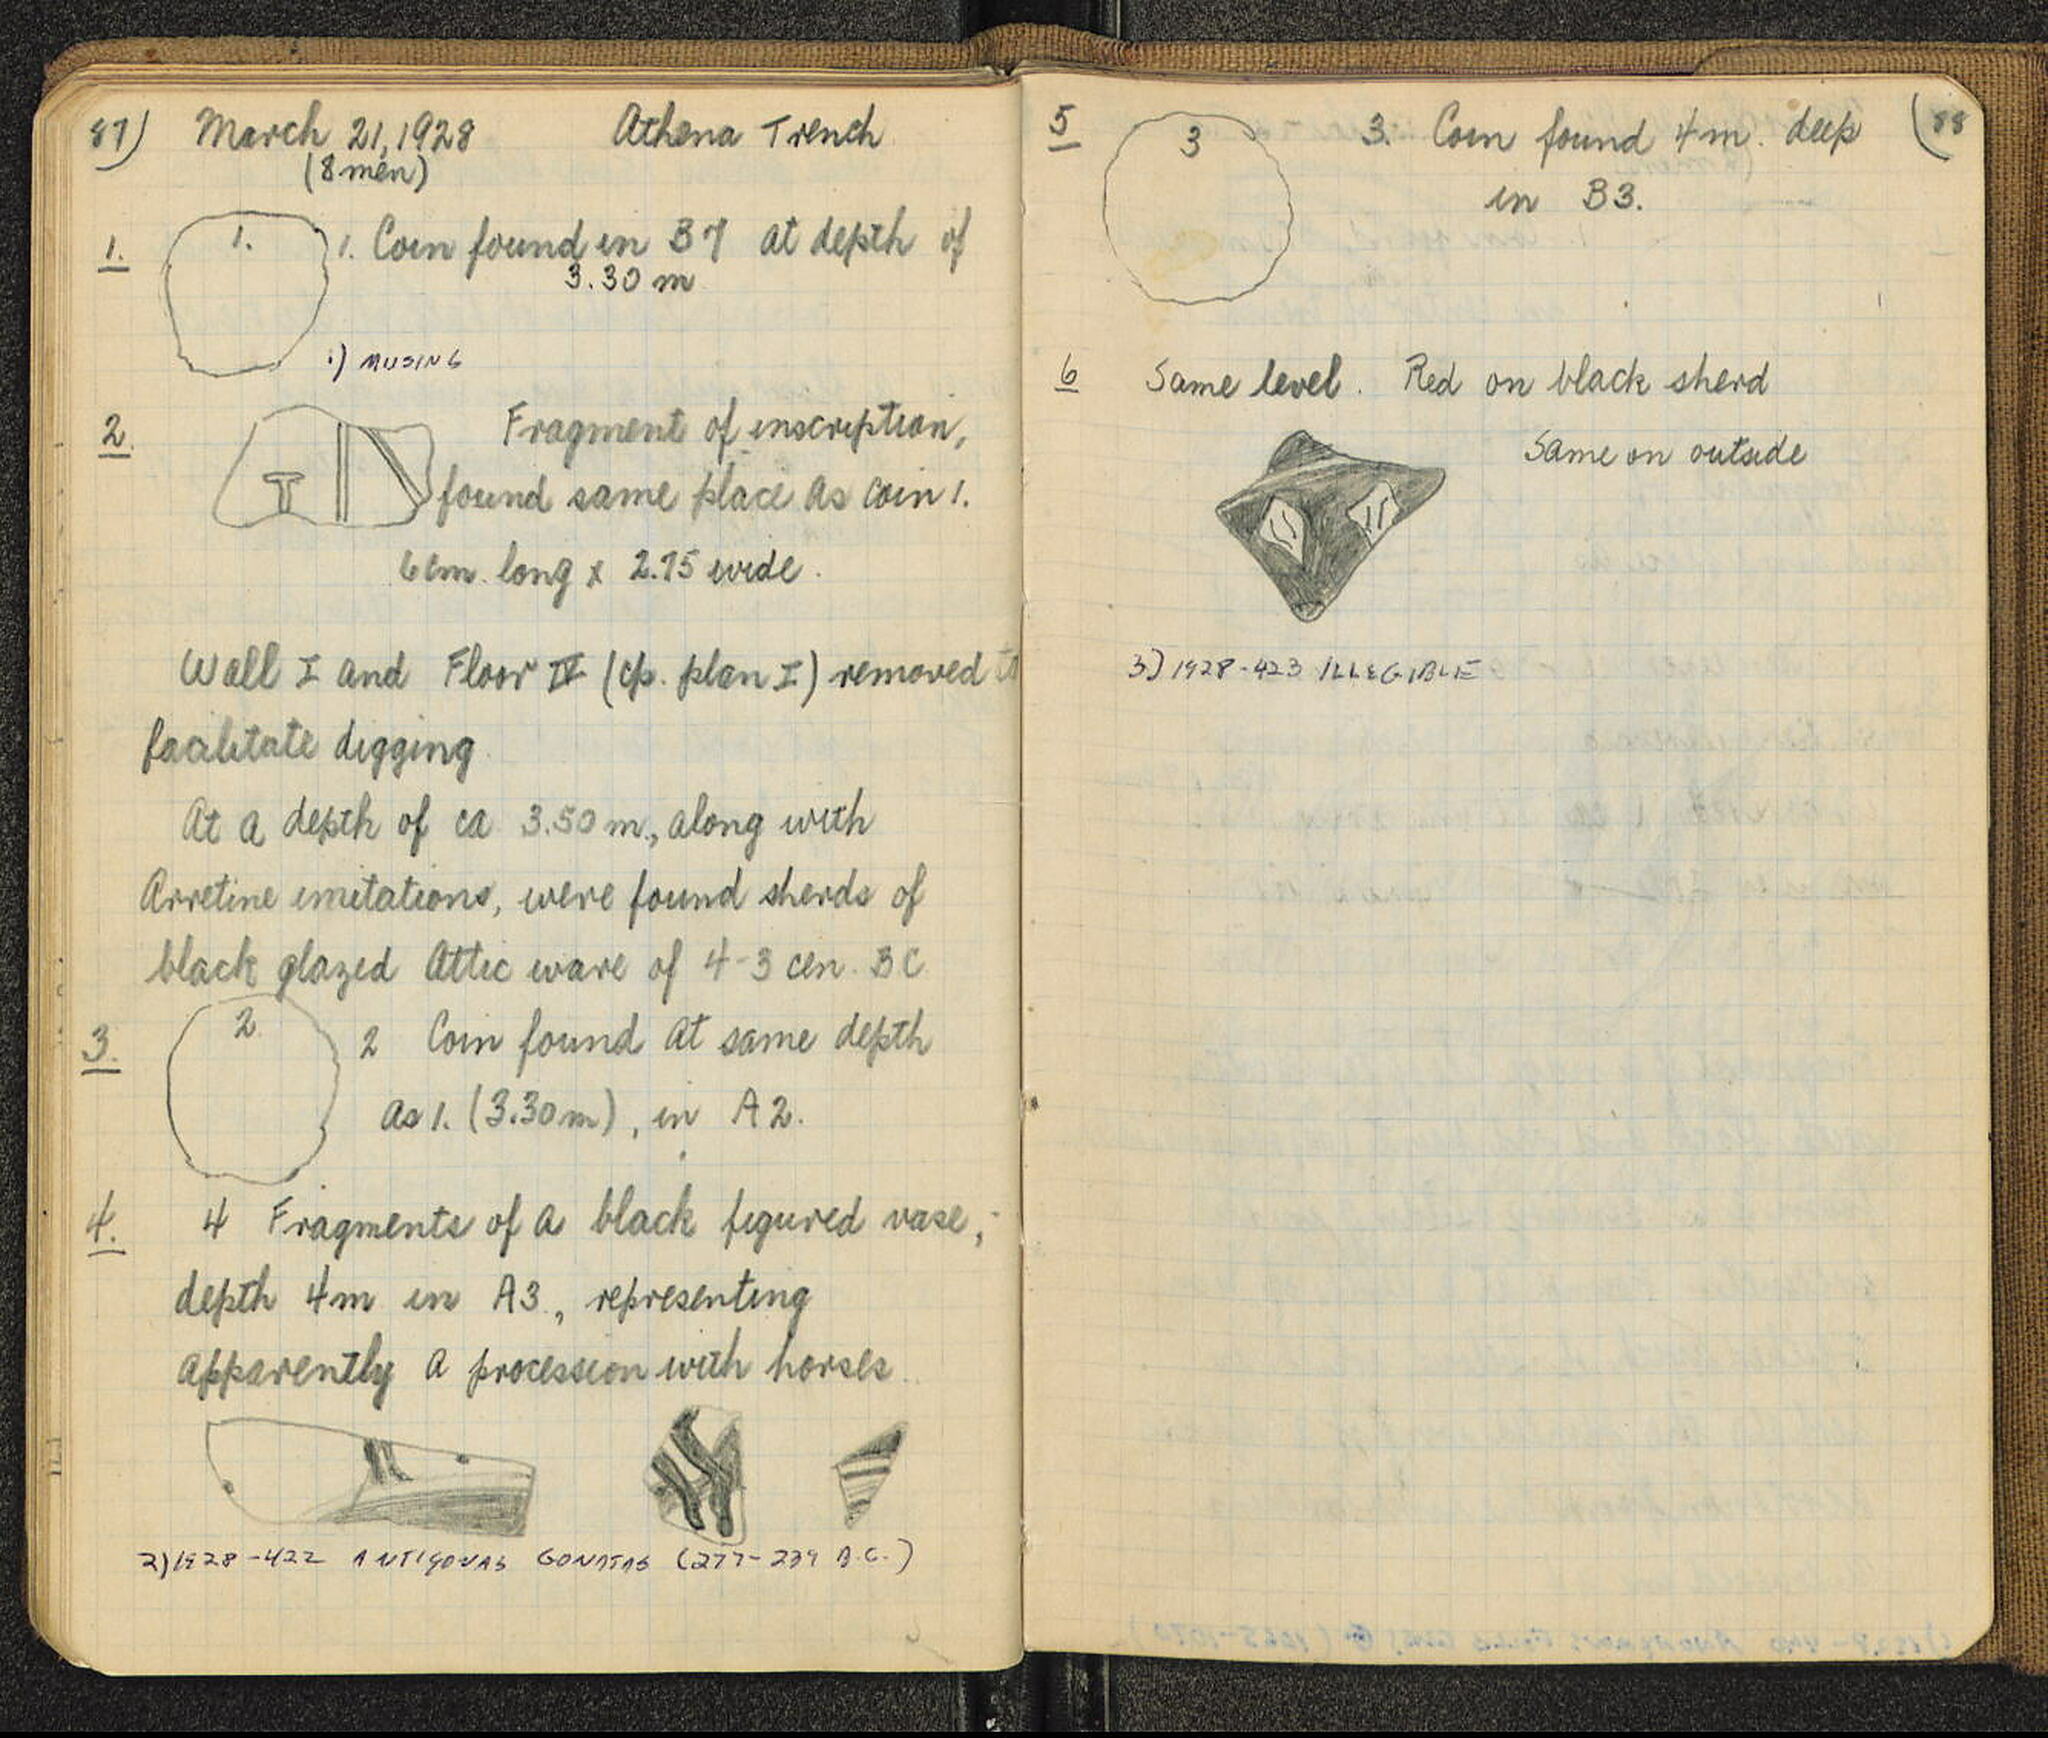 87) March 21, 1928 Athena Trench
(8 men)
1. 1. 1. Coin found in B7 at depth of
3.30 m
1) MUSING
2. Fragment of inscription,
found same place as coin 1.
6 cm. long x 2.75 wide.
Wall I and Floor IV (cp. plan I) removed to
facilitate digging
At a depth of ca 3.50 m., along with
Arretine imitations, were found sherds of
black glazed Attic ware of 4-3 cen. BC
3. 2 2 Coin found at same depth
as 1. (3.30m), in A2.
4. 4 Fragments of a black figured vase,
depth 4m in A3., representing
apparently a procession with horses.
2) 1928-422 ANTIGONAS GONATAS (277-239 B.C.)
5 3 3. Coin found 4m. deep (88
in B3.
6 Same level. Red on black sherd
Same on outside
3) 1928-423 ILLEGIBLE